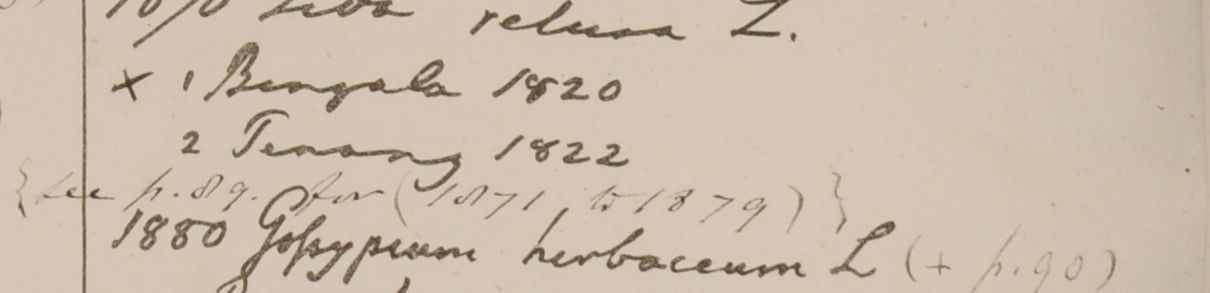 1870 Sida retusa L.
× 1 Bengala 1820
2 Penang 1822
{see p. 89. for (1871 to 1879)}
1880 Gossypium herbaceum L (+ p. 90)